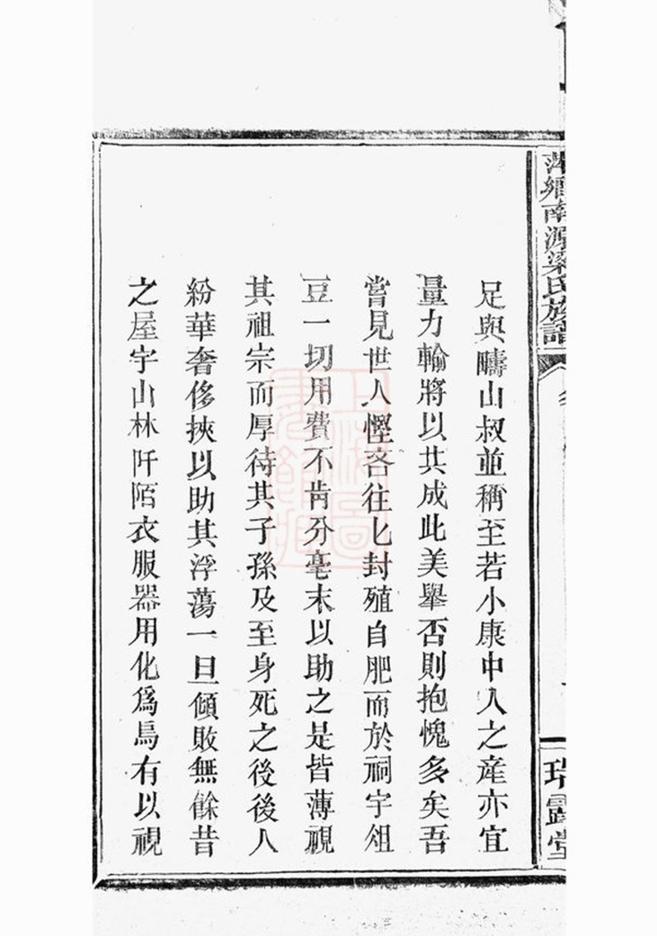 萍鄉南源梁氏族譜
瑞露堂
足與疇山叔並稱至若小康中人之産亦宜
量力輸將以共成此美舉否則抱愧多矣吾
嘗見世人慳吝往匕封殖自肥而於祠宇俎
豆一切用費不肯分毫末以助之是皆薄視
其祖宗而厚待其子孫及至身死之後後人
紛華奢侈挾以助其浮蕩一旦傾敗無餘昔
之屋宇山林阡陌衣服器用化爲烏有以視